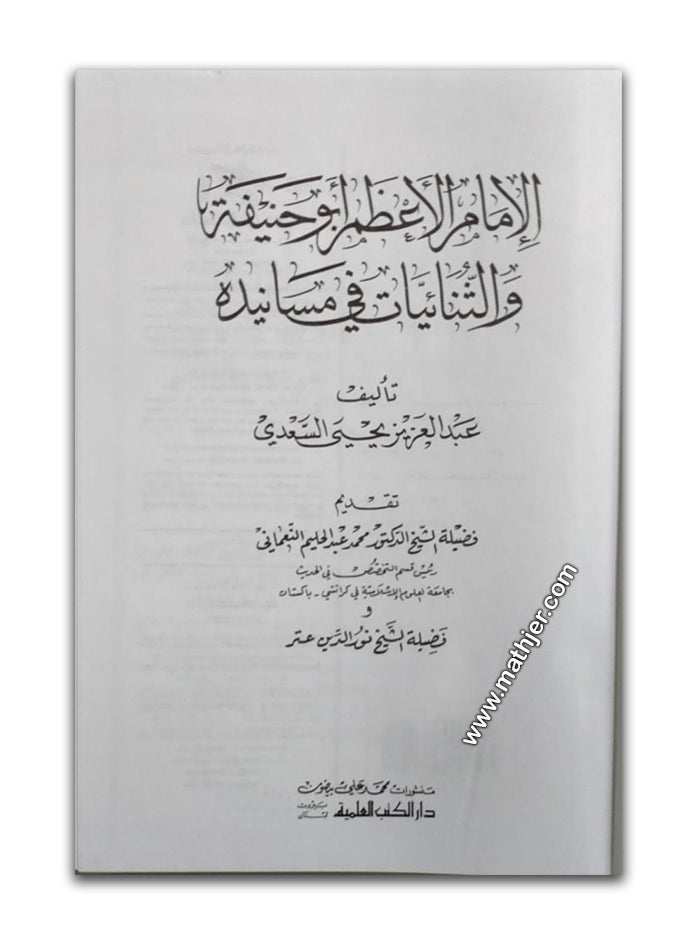 الإمام الأعظم أبو حنيفة
والثنائيات في مسانيده
تأليف
عبد العزيز يحيى السعدي
تقديم
فضيلة الشيخ الدكتور محمد عبد الحليم النعماني
رئيس قسم التخصص في الحديث
بجامعة العلوم الإسلامية في كراتشي - باكستان
و
فضيلة الشيخ نور الدين عتر
www.mathjer.com
منشورات محمد علي بيضون
دار الكتب العلمية بيروت لبنان